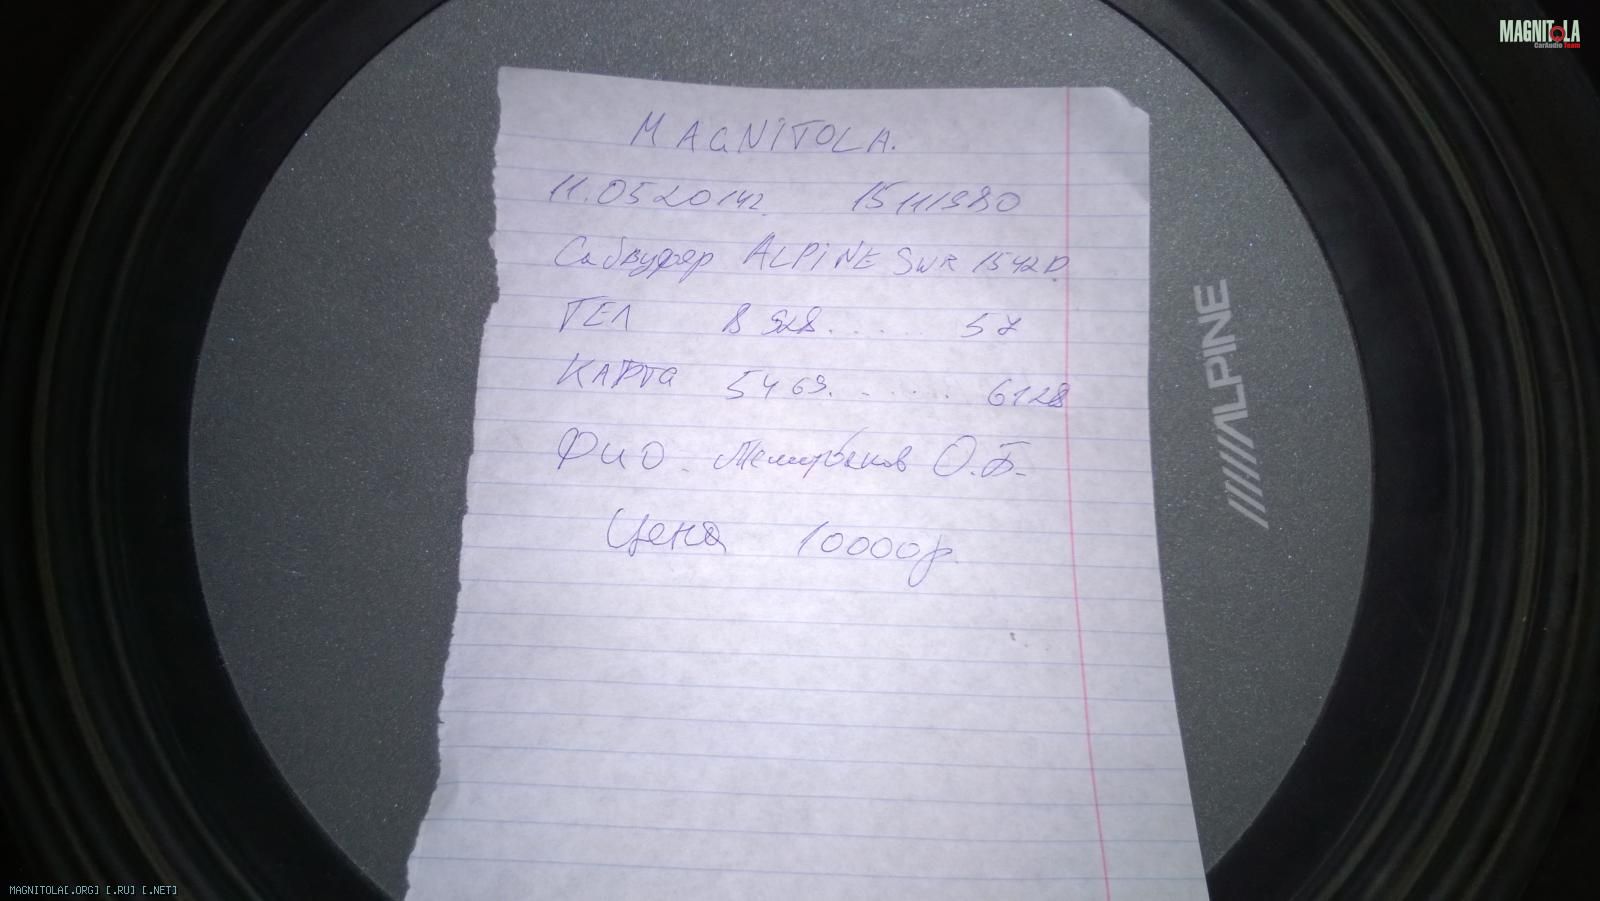 MAGNITOLA
CarAudio Team
MAGNITOLA.
11.05 2014г. 15111980
Сабвуфер ALPINE SWR 1542D
ТЕЛ 8 928. . . . . 57
КАРТА 5469. . . . . . 6128
ФИО. О.Б.
Цена 10000р.
ALPINE
MAGNITOLA[.ORG] [.RU] [.NET]